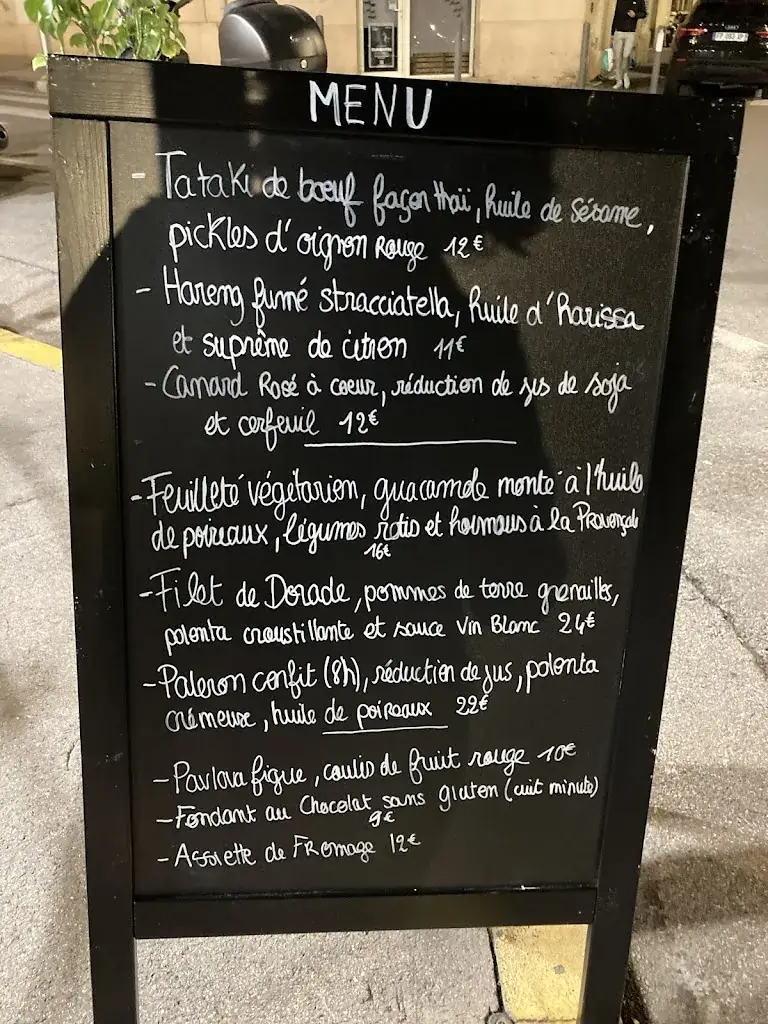 MENU
- Tataki de boeuf façon thaï, huile de sésame,
pickles d'oignon Rouge 12€
- Hareng fumé stracciatella, huile d'harissa
et suprême de citron 11€
- Canard Rosé à coeur, réduction de jus de soja
et cerfeuil 12€
- Feuilleté végétarien, guacamole monté à l'huile
de poireaux, légumes rotis et houmous à la Provençale
16€
- Filet de Dorade, pommes de terre grenailles,
polenta croustillante et sauce Vin Blanc 24€
- Paleron confit (8h), réduction de jus, polenta
crémeuse, huile de poireaux 22€
- Pavlova figue, coulis de fruit rouge 10€
- Fondant au Chocolat sans gluten (cuit minute)
9€
- Assiette de Fromage 12€